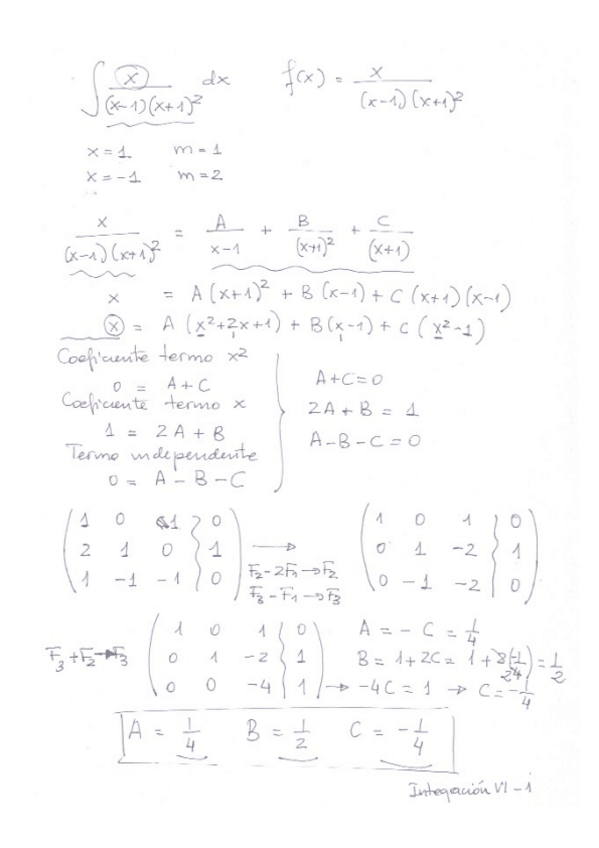 ∫ x / (x-1)(x+1)² dx    f(x) = x / (x-1)(x+1)²
x = 1    m = 1
x = -1    m = 2
x / (x-1)(x+1)² = A / x-1 + B / (x+1)² + C / (x+1)
x = A(x+1)² + B(x-1) + C(x+1)(x-1)
x = A(x²+2x+1) + B(x-1) + C(x²-1)
Coeficiente termo x²
0 = A+C
Coeficiente termo x
1 = 2A+B
Termo independente
0 = A-B-C
A+C=0
2A+B = 1
A-B-C=0
1 0 1 0
2 1 0 1
1 -1 -1 0
F₂-2F₁→F₂
F₃-F₁→F₃
1 0 1 0
0 1 -2 1
0 -1 -2 0
F₃+F₂→F₃
1 0 1 0
0 1 -2 1
0 0 -4 1 → -4C = 1 → C = -1/4
A = -C = 1/4
B = 1+2C = 1+2(-1/4) = 1/2
A = 1/4    B = 1/2    C = -1/4
Integración VI-1